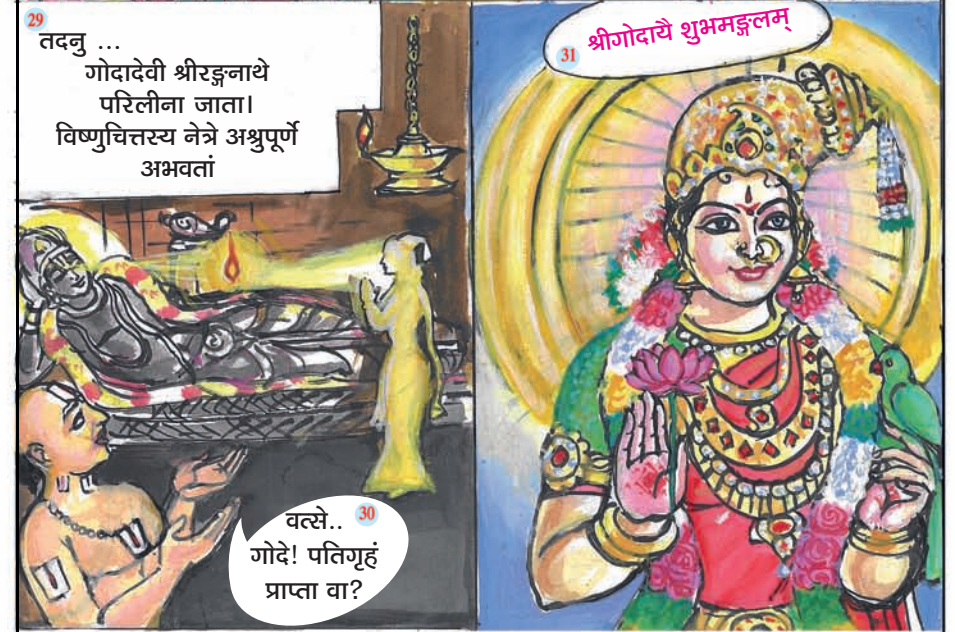 29
तदनु ...
गोदादेवी श्रीरङ्गनाथे
परिलीना जाता।
विष्णुचित्तस्य नेत्रे अश्रुपूर्णे
अभवतां
वत्से.. 30
गोदे! पतिगृहं
प्राप्ता वा?
31 श्रीगोदायै शुभमङ्गलम्